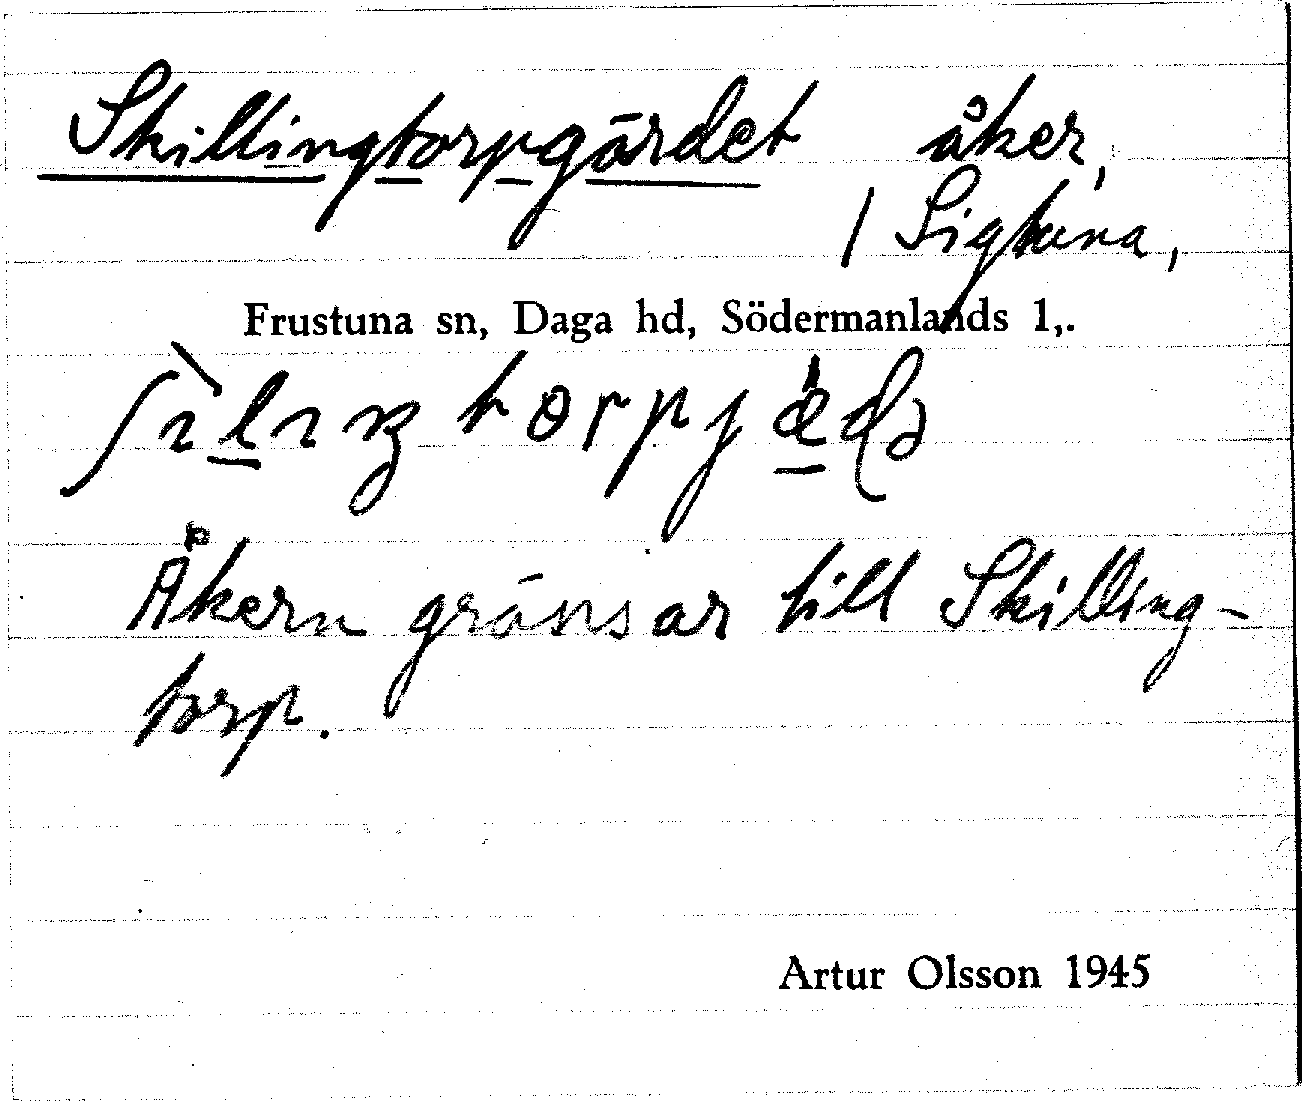 Skillingtorpgärdet åker,
/ Sigtuna,
Frustuna sn, Daga hd, Södermanlands l,.
Åkern gränsar till Skilling-
torp.
Artur Olsson 1945